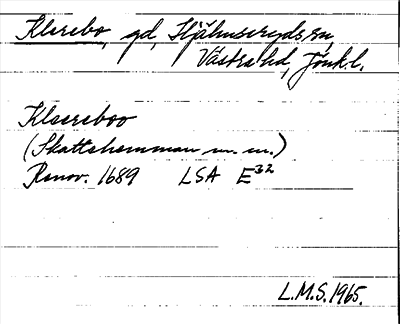 Klerebo, gd, Stjähuseryds sn,
Västra hd, Jönk.l.
Klaereboo
(Skattehemman m.m.)
Renov. 1689 LSA E32
L.M.S. 1965.